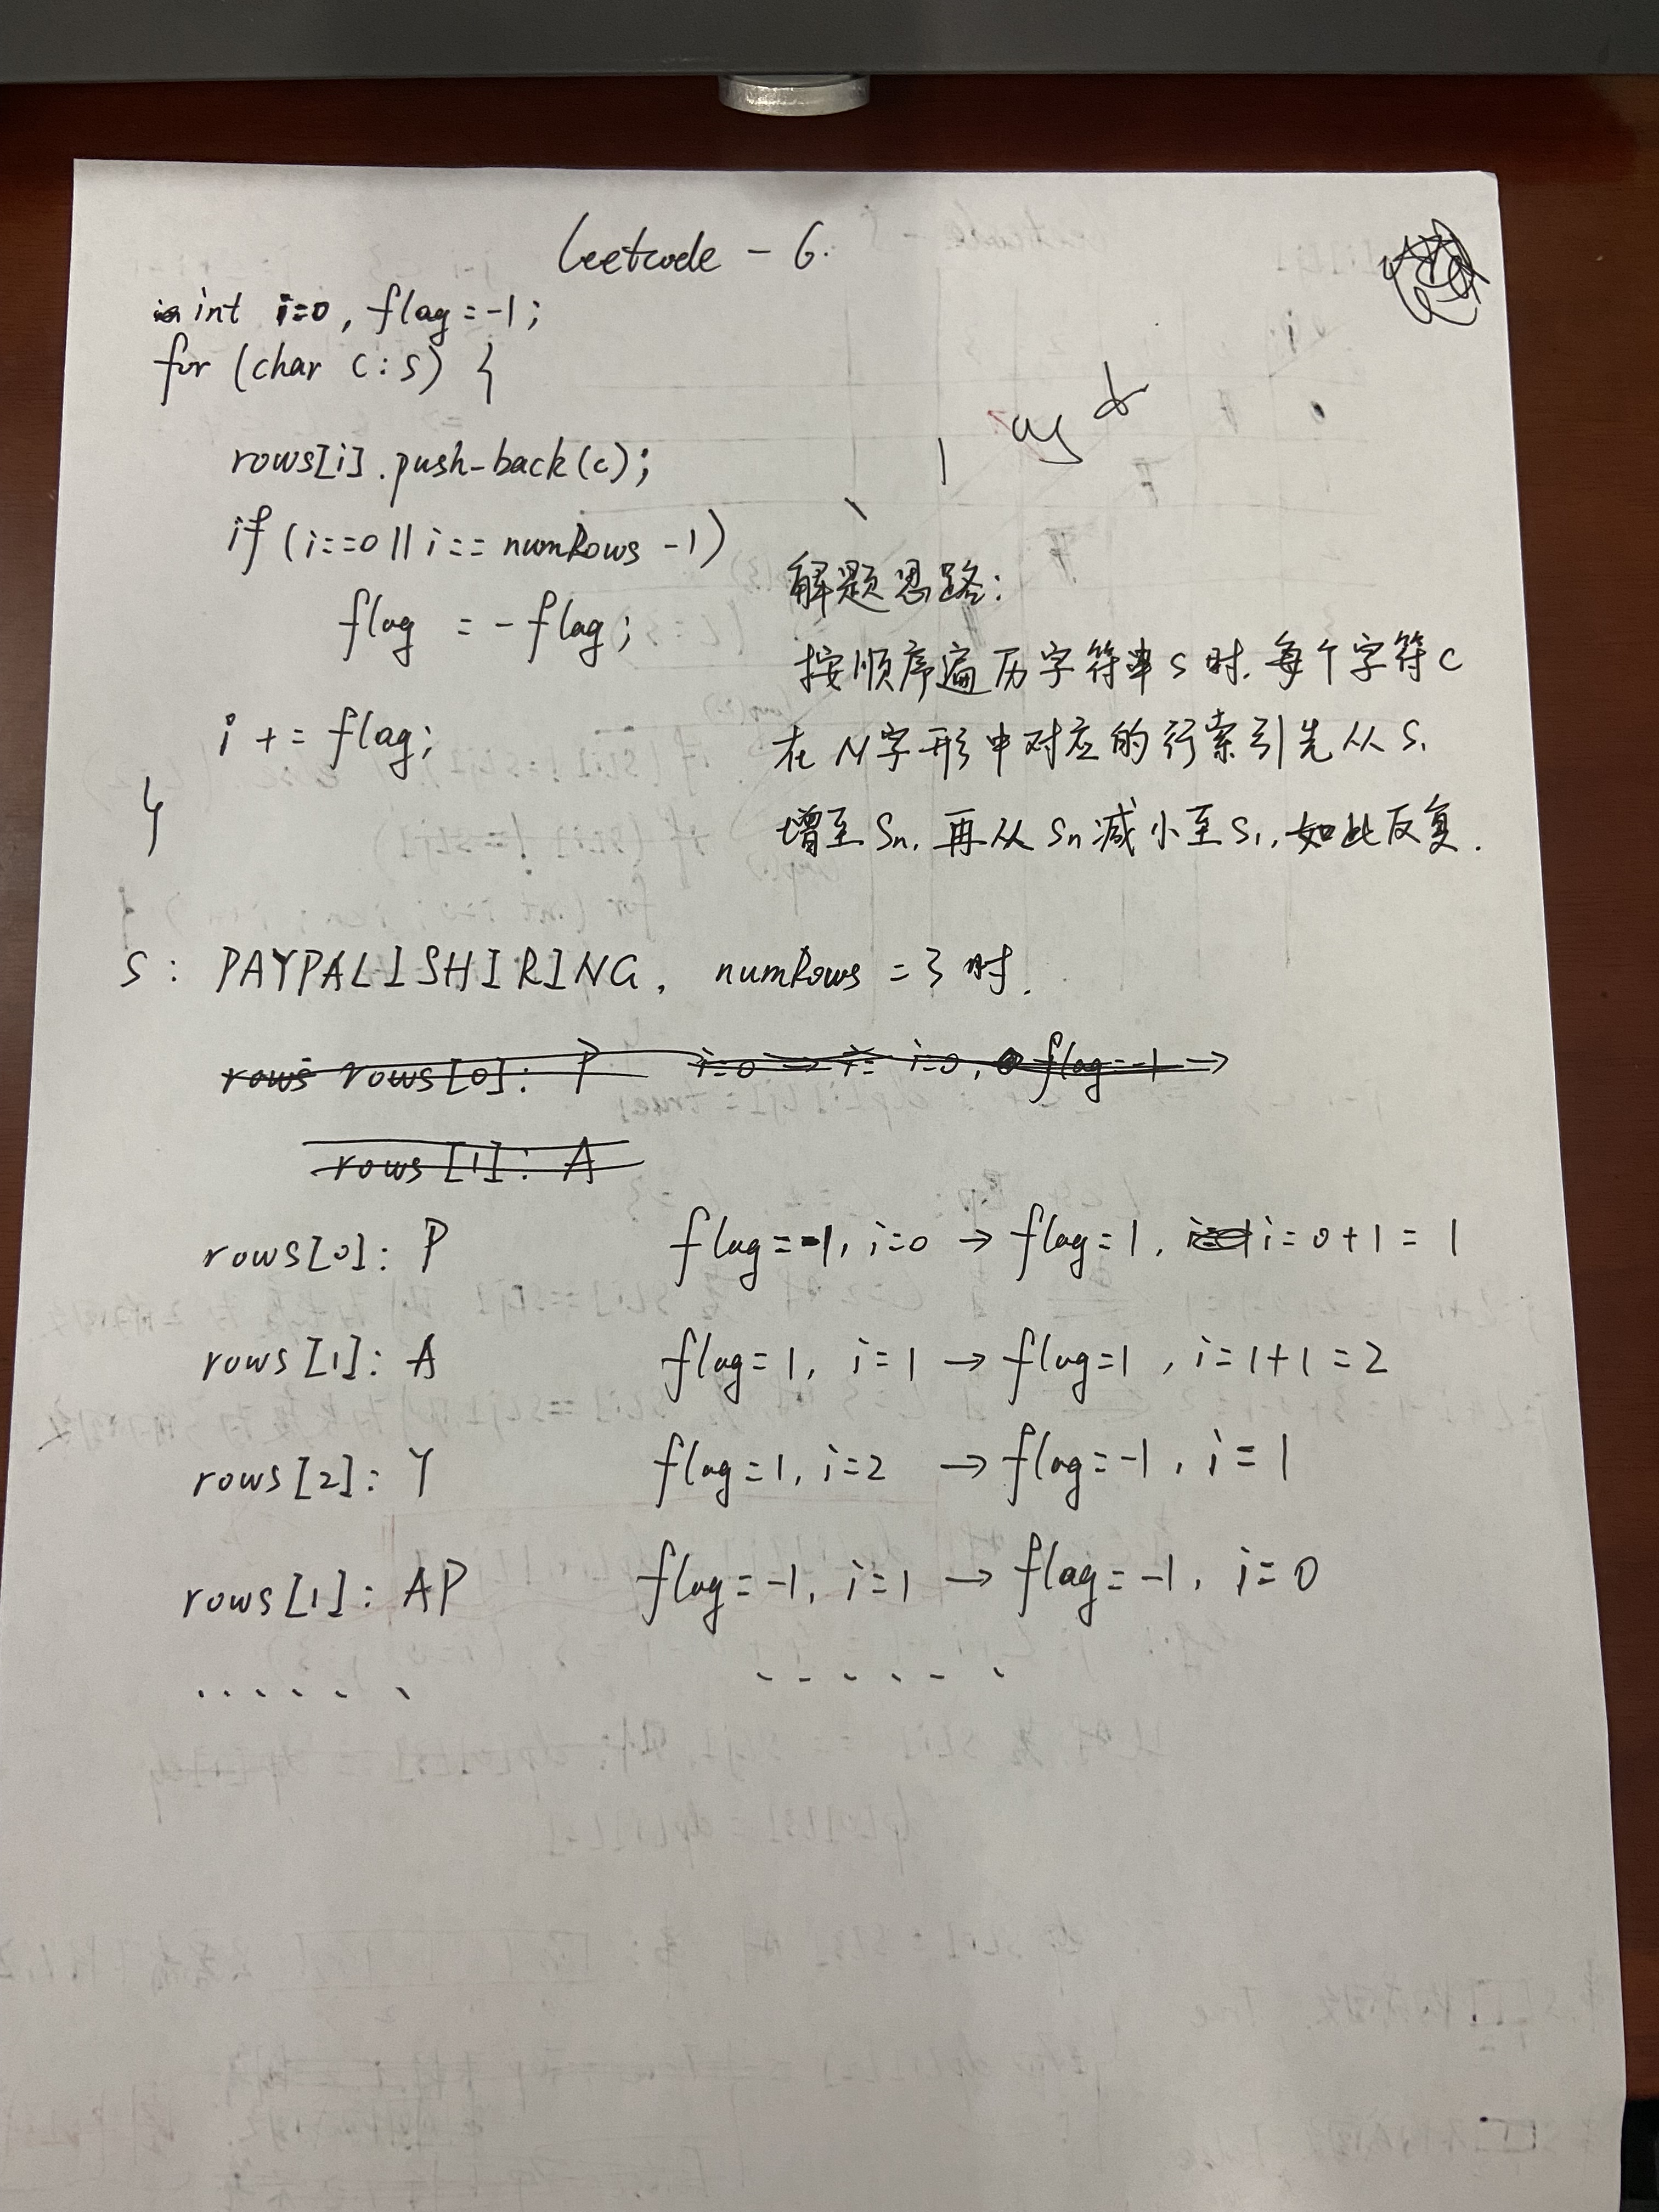 Leetcode - 6.
int i=0, flag=-1;
for (char c:s) {
rows[i].push-back(c);
if (i==0 || i== numRows -1)
flag = -flag;
i += flag;
}
解题思路:
按顺序遍历字符串s时,每个字符c
在N字形中对应的行索引先从S1
增至Sn,再从Sn减小至S1,如此反复.
S: PAYPALISHIRING, numRows = 3 时.
rows rows[0]: P i=0 → i= i=0, flag=-1 →
rows[1]: A
rows[0]: P flag=-1, i=0 → flag=1, i=0+1=1
rows[1]: A flag=1, i=1 → flag=1, i=1+1=2
rows[2]: Y flag=1, i=2 → flag=-1, i=1
rows[1]: AP flag=-1, i=1 → flag=-1, i=0
...... ......